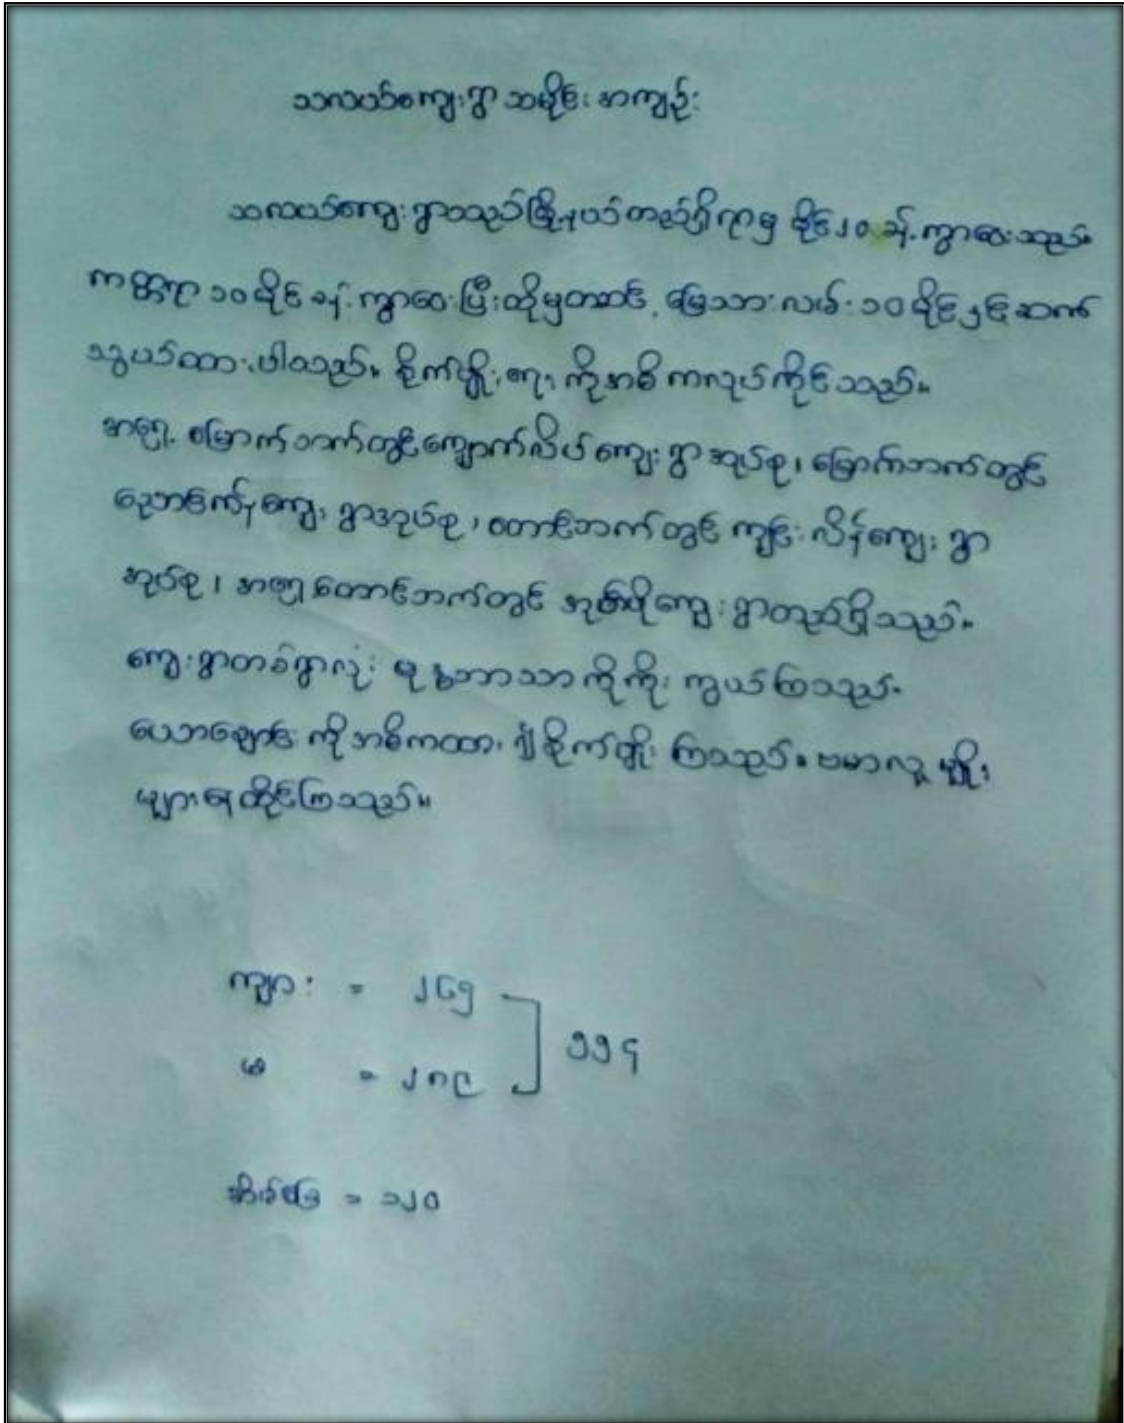 သလယ်ကျေးရွာ သမိုင်း အကျဉ်း
သလယ်ကျေးရွာသည်မြို့နယ်တည်ရှိရာမှ မိုင်၂၀ ခန့်ကွာဝေးသည်။
ကတ္တရာ ၁၀ မိုင်ခန့်ကွာဝေးပြီးထိုမှတဆင့် မြေသားလမ်း ၁၀ မိုင်နှင့်ဆက်
သွယ်ထားပါသည်။ စိုက်ပျိုးရေး ကိုအဓိကလုပ်ကိုင်သည်။
အရှေ့မြောက်ဘက်တွင်ကျောက်လိပ်ကျေးရွာအုပ်စု၊ မြောက်ဘက်တွင်
ကျေးရွာအုပ်စု၊ တောင်ဘက်တွင် ကျင်းလိန်ကျေးရွာ
အုပ်စု၊ အရှေ့တောင်ဘက်တွင် ကျေးရွာတည်ရှိသည်။
ကျေးရွာတစ်ရွာလုံး ဗုဒ္ဓဘာသာကိုကိုးကွယ်ကြသည်။
ယောချောင်းကိုအဓိကထား၍စိုက်ပျိုးကြသည်။ ဗမာလူမျိုး
များနေထိုင်ကြသည်။
ကျား = ၂၆၅
မ = ၂၈၉
၅၅၄
အိမ်ခြေ = ၁၂၀